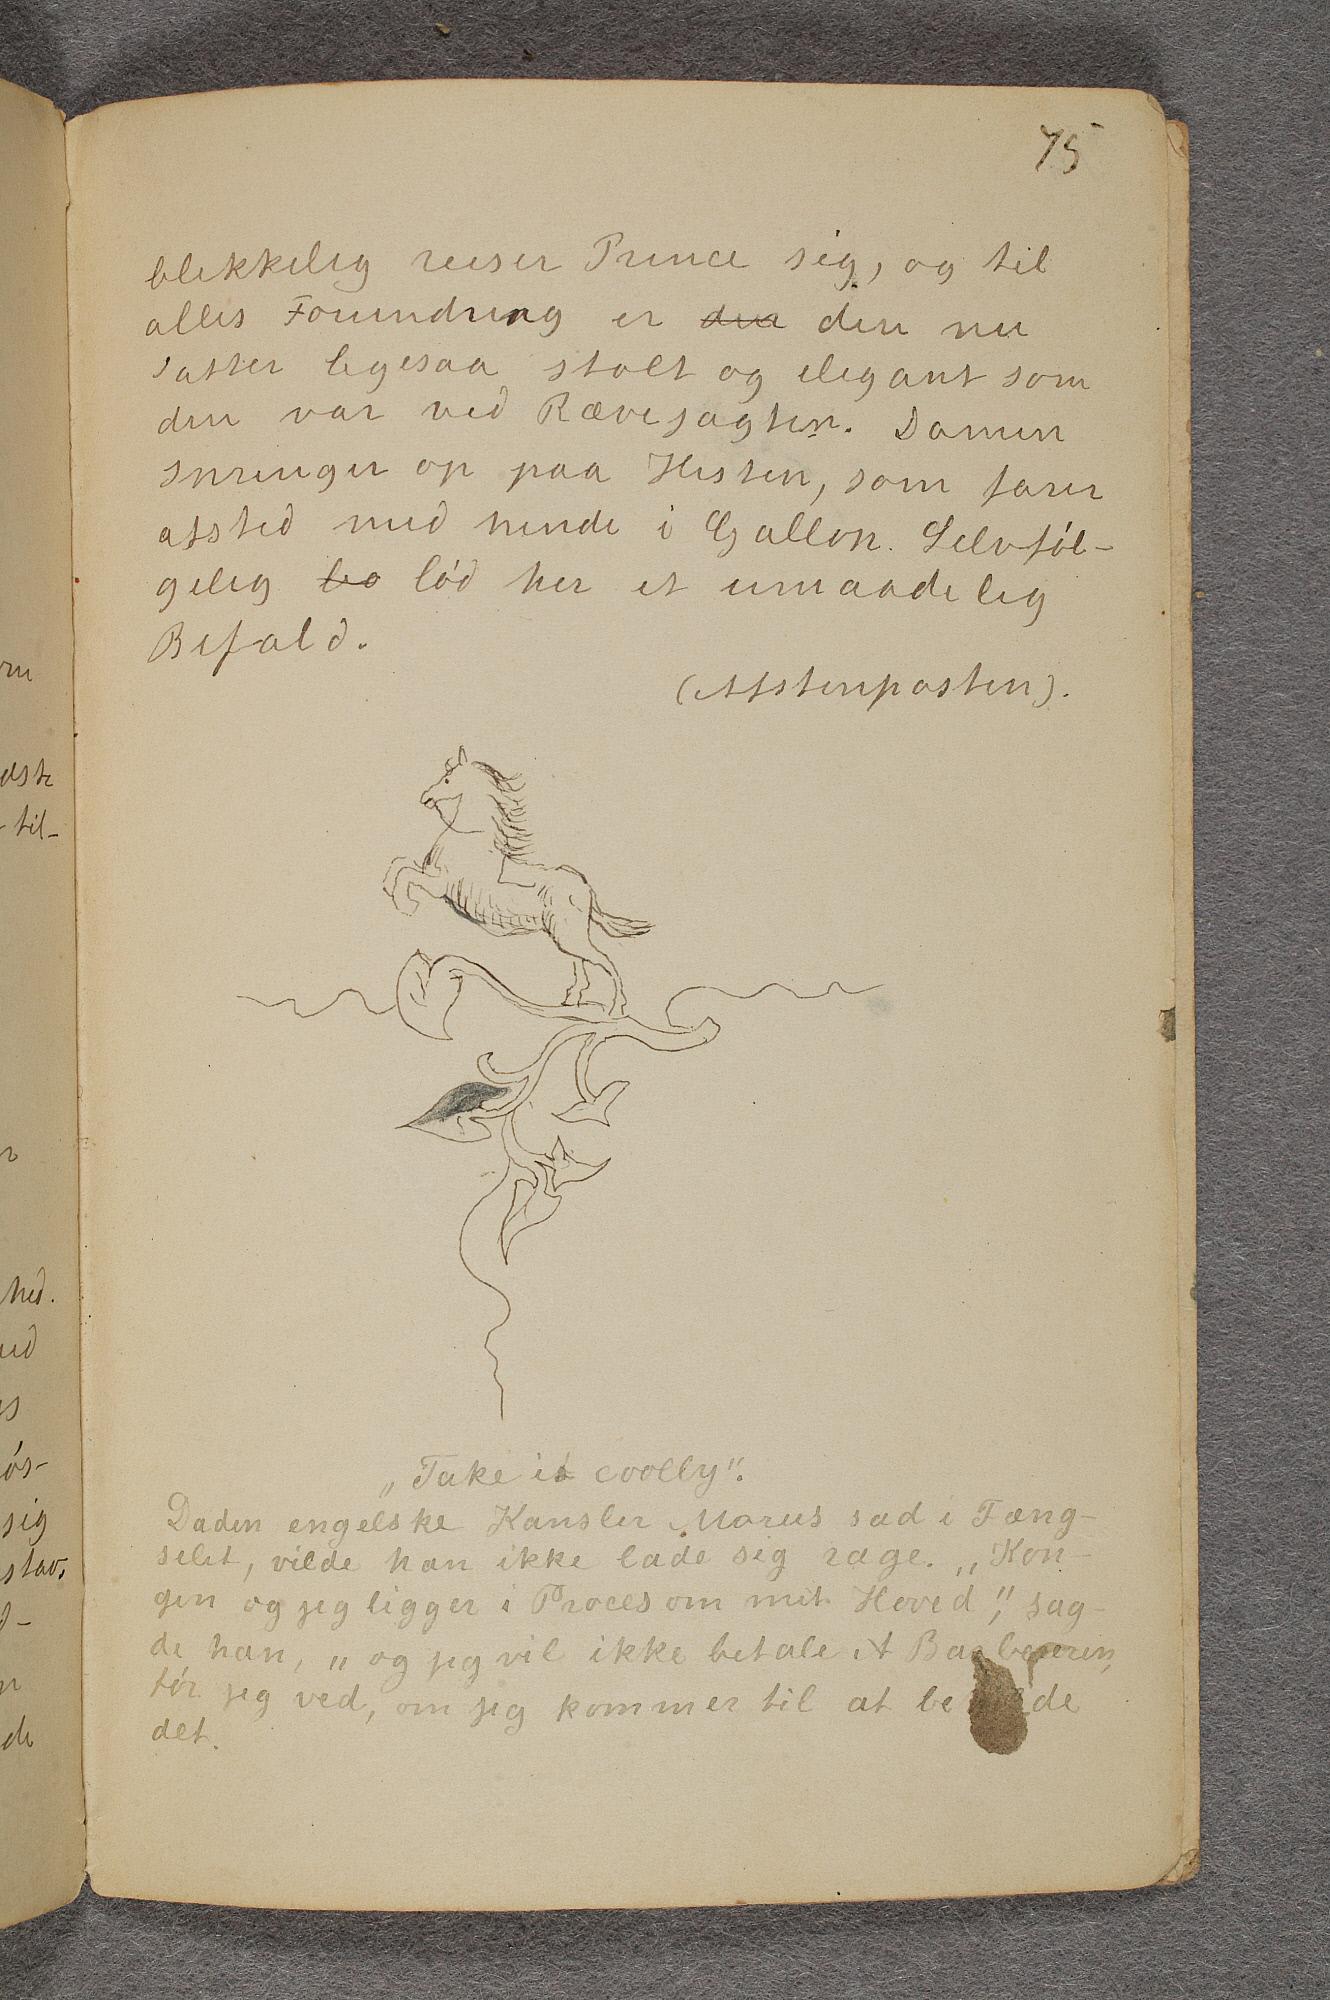 75
blikkelig reiser Prince sig, og til
alles Forundring er den den nu
satter ligesaa stolt og elegant som
den var ved Rævejagten. Damen
springer op paa Hesten, som farer
afsted med hende i Gallop. Selvføl-
gelig lø lød her et umaadelig
Bifald.
(Aftenposten).
„Take it coolly".
Da den engelske Kansler Morus sad i Fæng-
selet, vilde han ikke lade sig rage. „Kon-
gen og jeg ligger i Proces om mit Hoved", sag-
de han, „og jeg vil ikke betale Barberen,
før jeg ved, om jeg kommer til at beholde
det.
rn
dste
til-
hed.
ud
øs-
sig
stav,
de